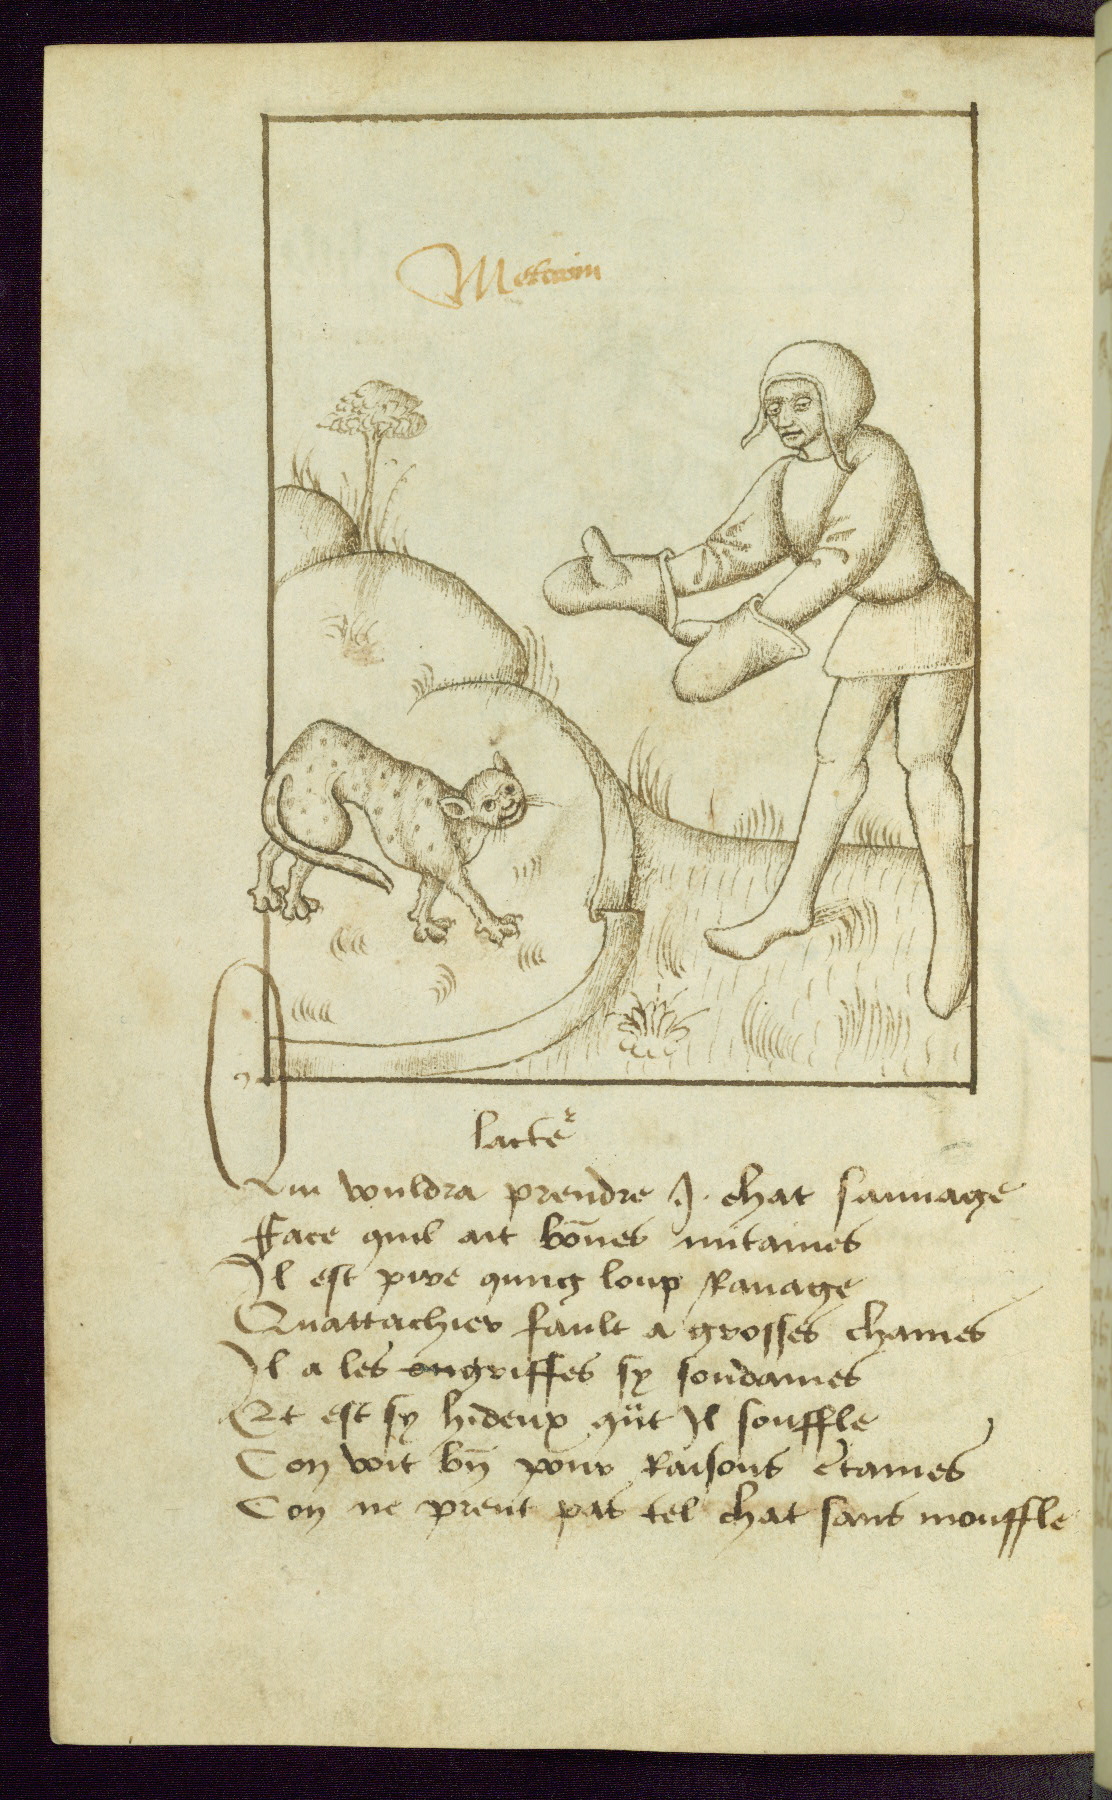 lacteʳ
Qui vouldra prendre .J. chat sauuage
fface quil ait bōnes mitaines
Il est pire qung loup Rauage
Quattachier fault a grosses chaines
Il a les engriffes sy soudaines
Et est sy hideux qūt Il souffle
Con voit bn̄ pour Raisons c̄taines
Con ne prent pas tel chat sans mouffle